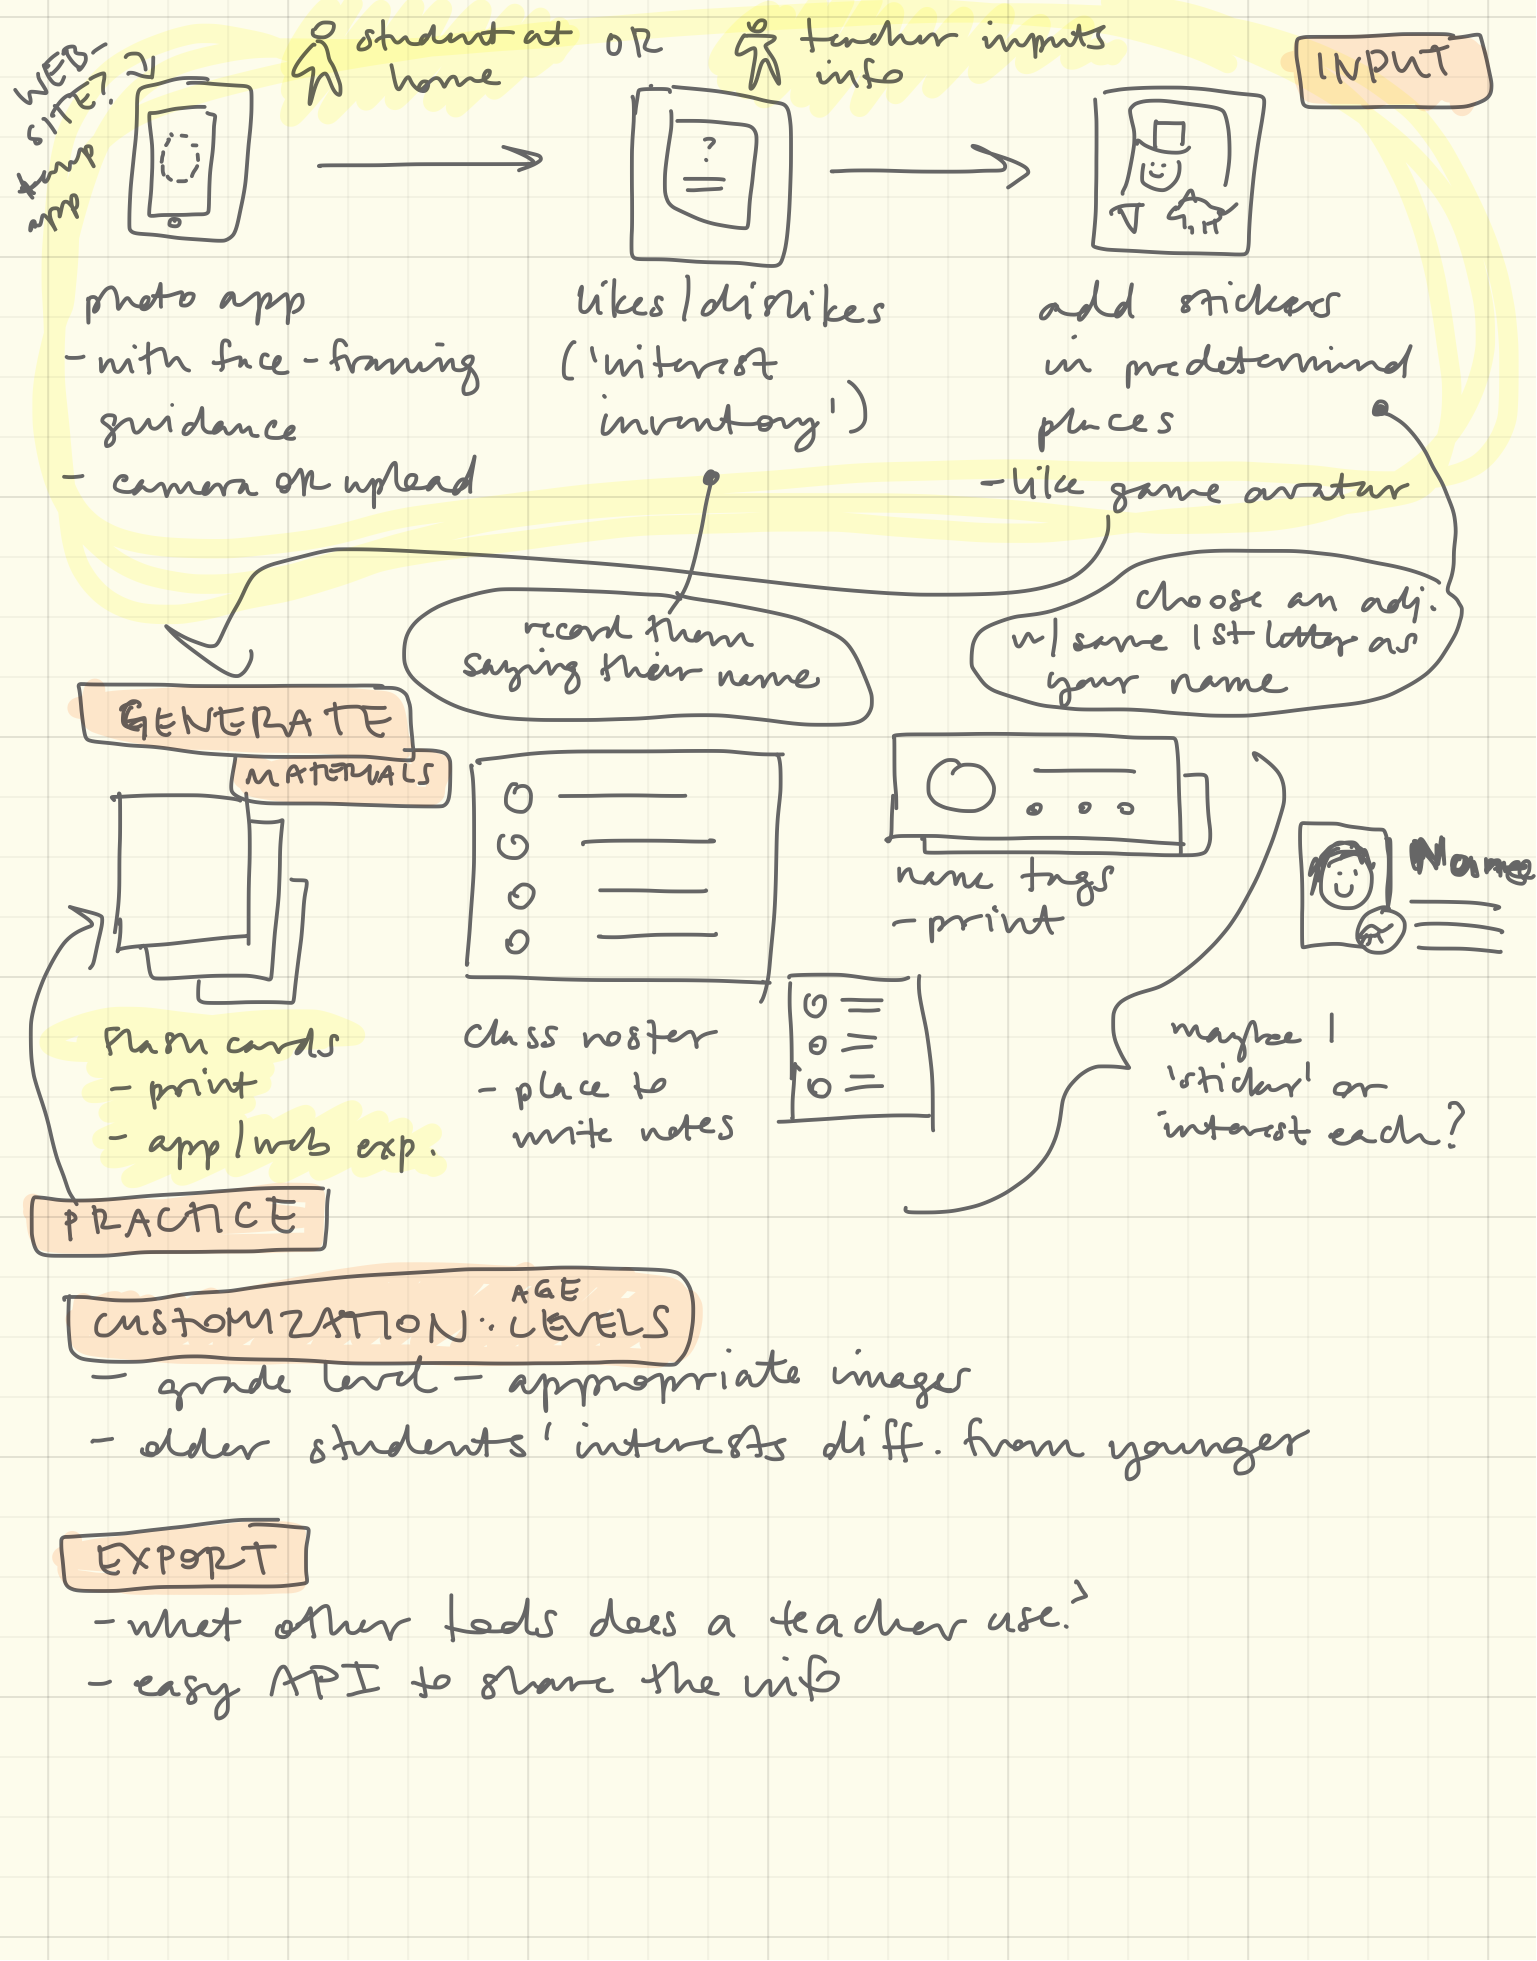 WEB-
SITE?
temp
app
student at
home
OR
teacher inputs
info
INPUT
?
photo app
- with face-framing
guidance
- camera OR upload
likes/dislikes
('interest
inventory')
add stickers
in predetermind
places
- like game avatar
record them
saying their name
choose an adj.
w/ same 1st letter as
your name
GENERATE
MATERIALS
flash cards
- print
- app/web exp.
class roster
- place to
write notes
name tags
- print
Name
maybe 1
'sticker' or
interest each?
PRACTICE
CUSTOMIZATION: AGE
LEVELS
- grade level-appropriate images
- older students' interests diff. from younger
EXPORT
- what other tools does a teacher use?
- easy API to share the info